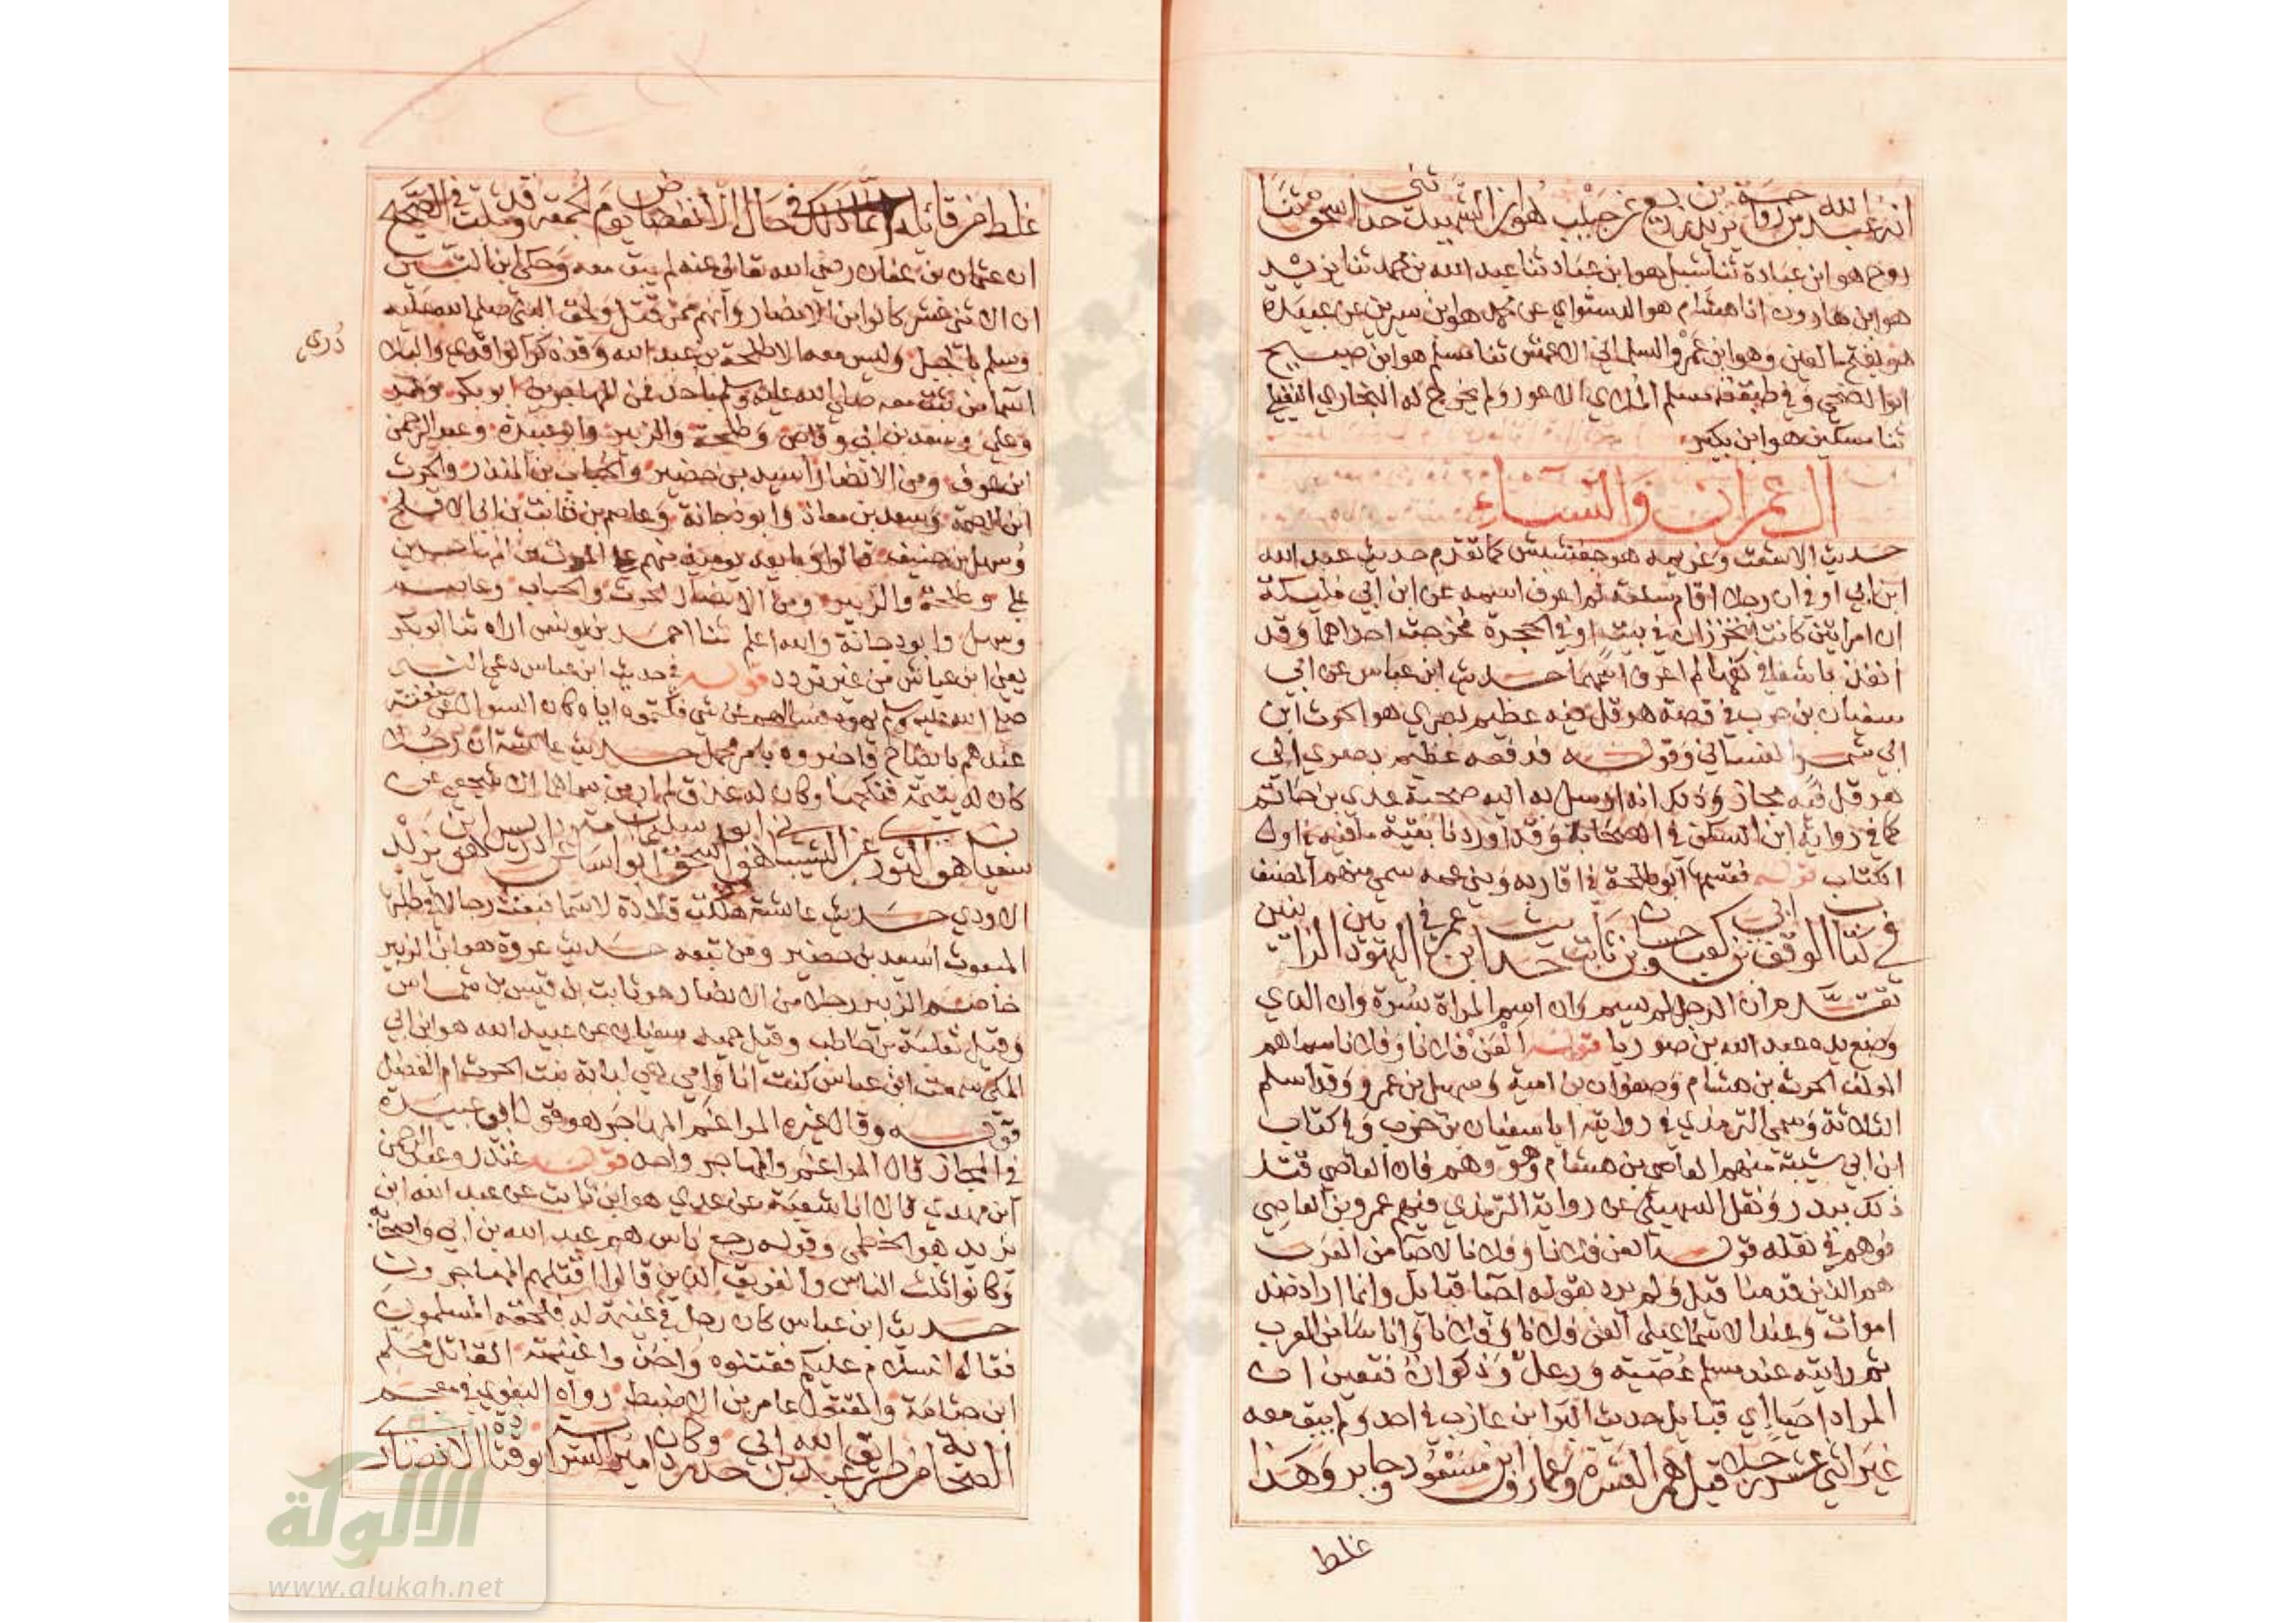 انه عبد الله بن رواحة يزيد بن زريع عن حبيب هو ابن الشهيد حدثني اسحق ثنا
روح هو ابن عبادة ثنا شبل هو ابن عباد ثنا عبد الله بن محمد ثنا يزيد
هو ابن هارون انا هشام هو الدستواي عن محمد هو ابن سيرين عن عبيدة
هو بفتح العين وهو ابن عمرو السلماني الاعمش ثنا مسلم هو ابن صبيح
ابو الضحى وفي طبقته مسلم الملاي الاعور ولم يخرج له البخاري النفيلي
ثنا مسكين هو ابن بكير
ال عمران والنساء
حديث الاشعث وغريمه هو جفشيش كما تقدم حديث عبد الله
ابن ابي اوفى ان رجلا اقام سلعة لم اعرف اسمه عن ابن ابي مليكة
ان امراتين كانتا تخرزان في بيت او في الحجرة فخرجت احداهما وقد
انفذ باشفا في كفها لم اعرف اسمهما حديث ابن عباس عن ابي
سفيان بن حرب في قصة هرقل فيه عظيم بصرى هو الحرث ابن
ابي شمر الغساني وقوله فدفعه عظيم بصرى الى
هرقل فيه مجاز وذلك انه ارسل به اليه صحبة عدي بن حاتم
كما في رواية ابن السكن في الصحابة وقد اوردنا بقية ما فيه في اول
الكتاب قوله فقسمها ابو طلحة في اقاربه وبني عمه سمي منهم المصنف
في كتاب الوقف ابي بن كعب وحسان بن ثابت حديث ابن عمر في اليهوديين الذين
تقدم ان الرجل لم يسم وان اسم المراة بسرة وان الذي
وضع يده عبد الله بن صوريا قوله العن فلانا وفلانا سماهم
المولف الحرث بن هشام وصفوان بن امية وسهيل بن عمرو وقد اسلم
الثلاثة وسمى الترمذي في روايته ابا سفيان بن حرب وفي كتاب
ابن ابي شيبة منهم العاصي بن هشام وهو وهم فان العاصي قتل
ذلك ببدر ونقل السهيلي عن رواية الترمذي فيهم عمرو بن العاصي
فوهم في نقله قوله العن فلانا وفلانا لاحيا من العرب
هم الذين قدمنا قبل ولم يرد بقوله احيا قبايل وانما اراد ضد
اموات وعند الاسماعيلي العن فلانا وفلانا واناسا من العرب
ثم رايته عند مسلم عصية ورعل وذكوان فتعين ان
المراد احيا اي قبايل حديث البرا بن عازب في احد ولم يبق معه
غير اثني عشر رجلا قيل هم العشرة وعمار وابن مسعود وجابر وهذا
غلط
غلط من قائله انما ذلك في حال الانفضاض يوم الجمعة وقد ثبت في الصحيح
ان عثمان بن عفان رضي الله تعالى عنه لم يبق معه وحكى ابن التين
ان الاثني عشر كانوا من الانصار وانهم ممن قتل ولحق النبي صلى الله عليه
وسلم بالجبل وليس معه الا طلحة بن عبيد الله وقد ذكر الواقدي والبلاذري
اسما من ثبت معه صلى الله عليه وسلم باحد فمن المهاجرين ابو بكر وعمر
وعلي وسعد بن ابي وقاص وطلحة والزبير وابو عبيدة وعبد الرحمن
ابن عوف ومن الانصار اسيد بن حضير والحباب بن المنذر والحرث
ابن الصمة وسعد بن معاذ وابو دجانة وعاصم بن ثابت بن ابي الاقلح
وسهل بن حنيف قالوا وبايعه يومئذ منهم على الموت
علي وطلحة والزبير ومن الانصار الحرث والحباب وعاصم
وسهل وابو دجانة والله اعلم ثنا احمد بن يونس اراه ثنا ابو بكر
يعني ابن عياش من غير تردد قوله في حديث ابن عباس دعى النبي
صلى الله عليه وسلم يهود فسالهم عن شي فكتموه اياه كان السوال عن صفته
عندهم بايضاح فاخبروه بامر مجمل حديث عائشة ان رجلا
كان له يتيمة فنكحها وكان له عذق
سفيان هو الثوري عن الشيباني هو ابو اسحق سليمان ابو اسامة عن ادريس هو ابن يزيد
الاودي حديث عائشة هلكت قلادة لاسما فبعث رجالا في طلبها
المبعوث اسيد بن حضير ومن تبعه حديث عروة هو ابن الزبير
خاصم الزبير رجلا من الانصار هو ثابت بن قيس بن شماس
وقيل ثعلبة بن حاطب وقيل حميد سفيان عن عبيد الله هو ابن ابي
المكي سمعت ابن عباس كنت انا وامي هي لبابة بنت الحرث ام الفضل
قوله وقال غيره المراغم المهاجر هو قول ابي عبيدة
في المجاز قال المراغم والمهاجر واحد قوله غندر وعبد الرحمن
ابن مهدي قال انا شعبة عن عدي هو ابن ثابت عن عبد الله ابن
يزيد هو الخطمي وقوله رجع ناس هم عبد الله بن ابي واصحابه
وكانوا ثلث الناس والفريق الذين قالوا اقتلهم المهاجرون
حديث ابن عباس كان رجل في غنيمة له فلحقه المسلمون
فقال السلام عليكم فقتلوه واخذوا غنيمته القاتل محلم
ابن جثامة والمقتول عامر بن الاضبط رواه البغوي في معجم
الصحابة من طريق عبد الله بن ابي حدرد وكان امير السرية ابو قتادة الانصاري
الألوكة
www.alukah.net